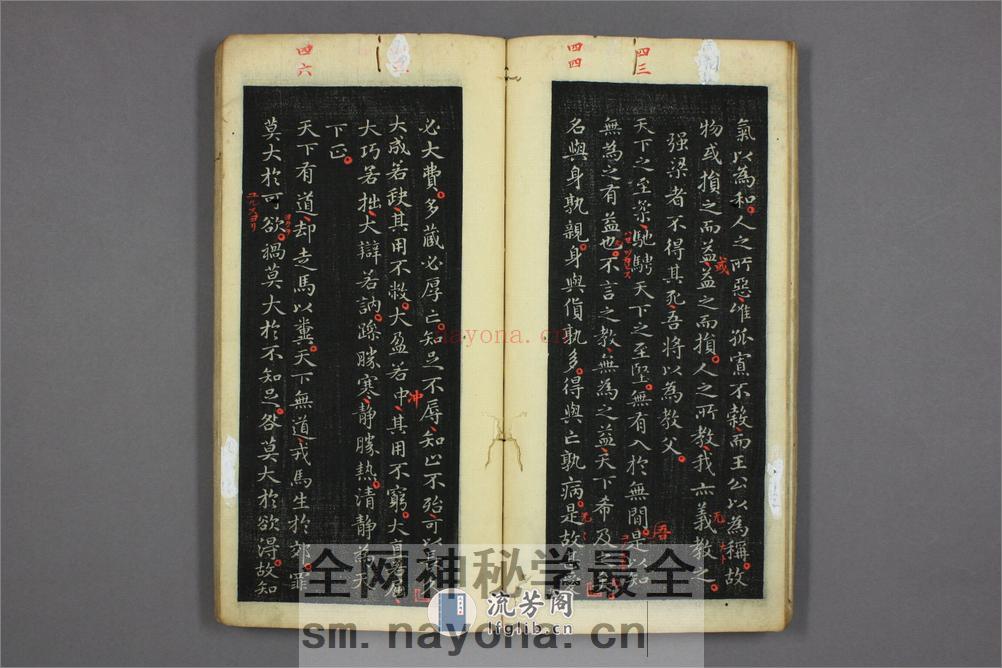 四三
四四
氣以為和人之所惡唯孤寡不穀而王公以為稱故
物或損之而益益之而損人之所教我亦義教之
或
强梁者不得其死吾將以為教父
天下之至柔馳騁天下之至堅無有入於無間是以知
吾
無為之有益也不言之教無為之益天下希及之
名與身孰親身與貨孰多得與亡孰病是故甚愛
四六
必大費多藏必厚亡知足不辱知止不殆可以
大成若缺其用不敝大盈若中其用不窮大直若屈
冲
大巧若拙大辯若訥躁勝寒靜勝熱清靜為天
下正
天下有道却走馬以糞天下無道戎馬生於郊罪
莫大於可欲禍莫大於不知足咎莫大於欲得故知
nayona.cn
全网神秘学最全
流芳阁
lfglib.cn
sm.nayona.cn